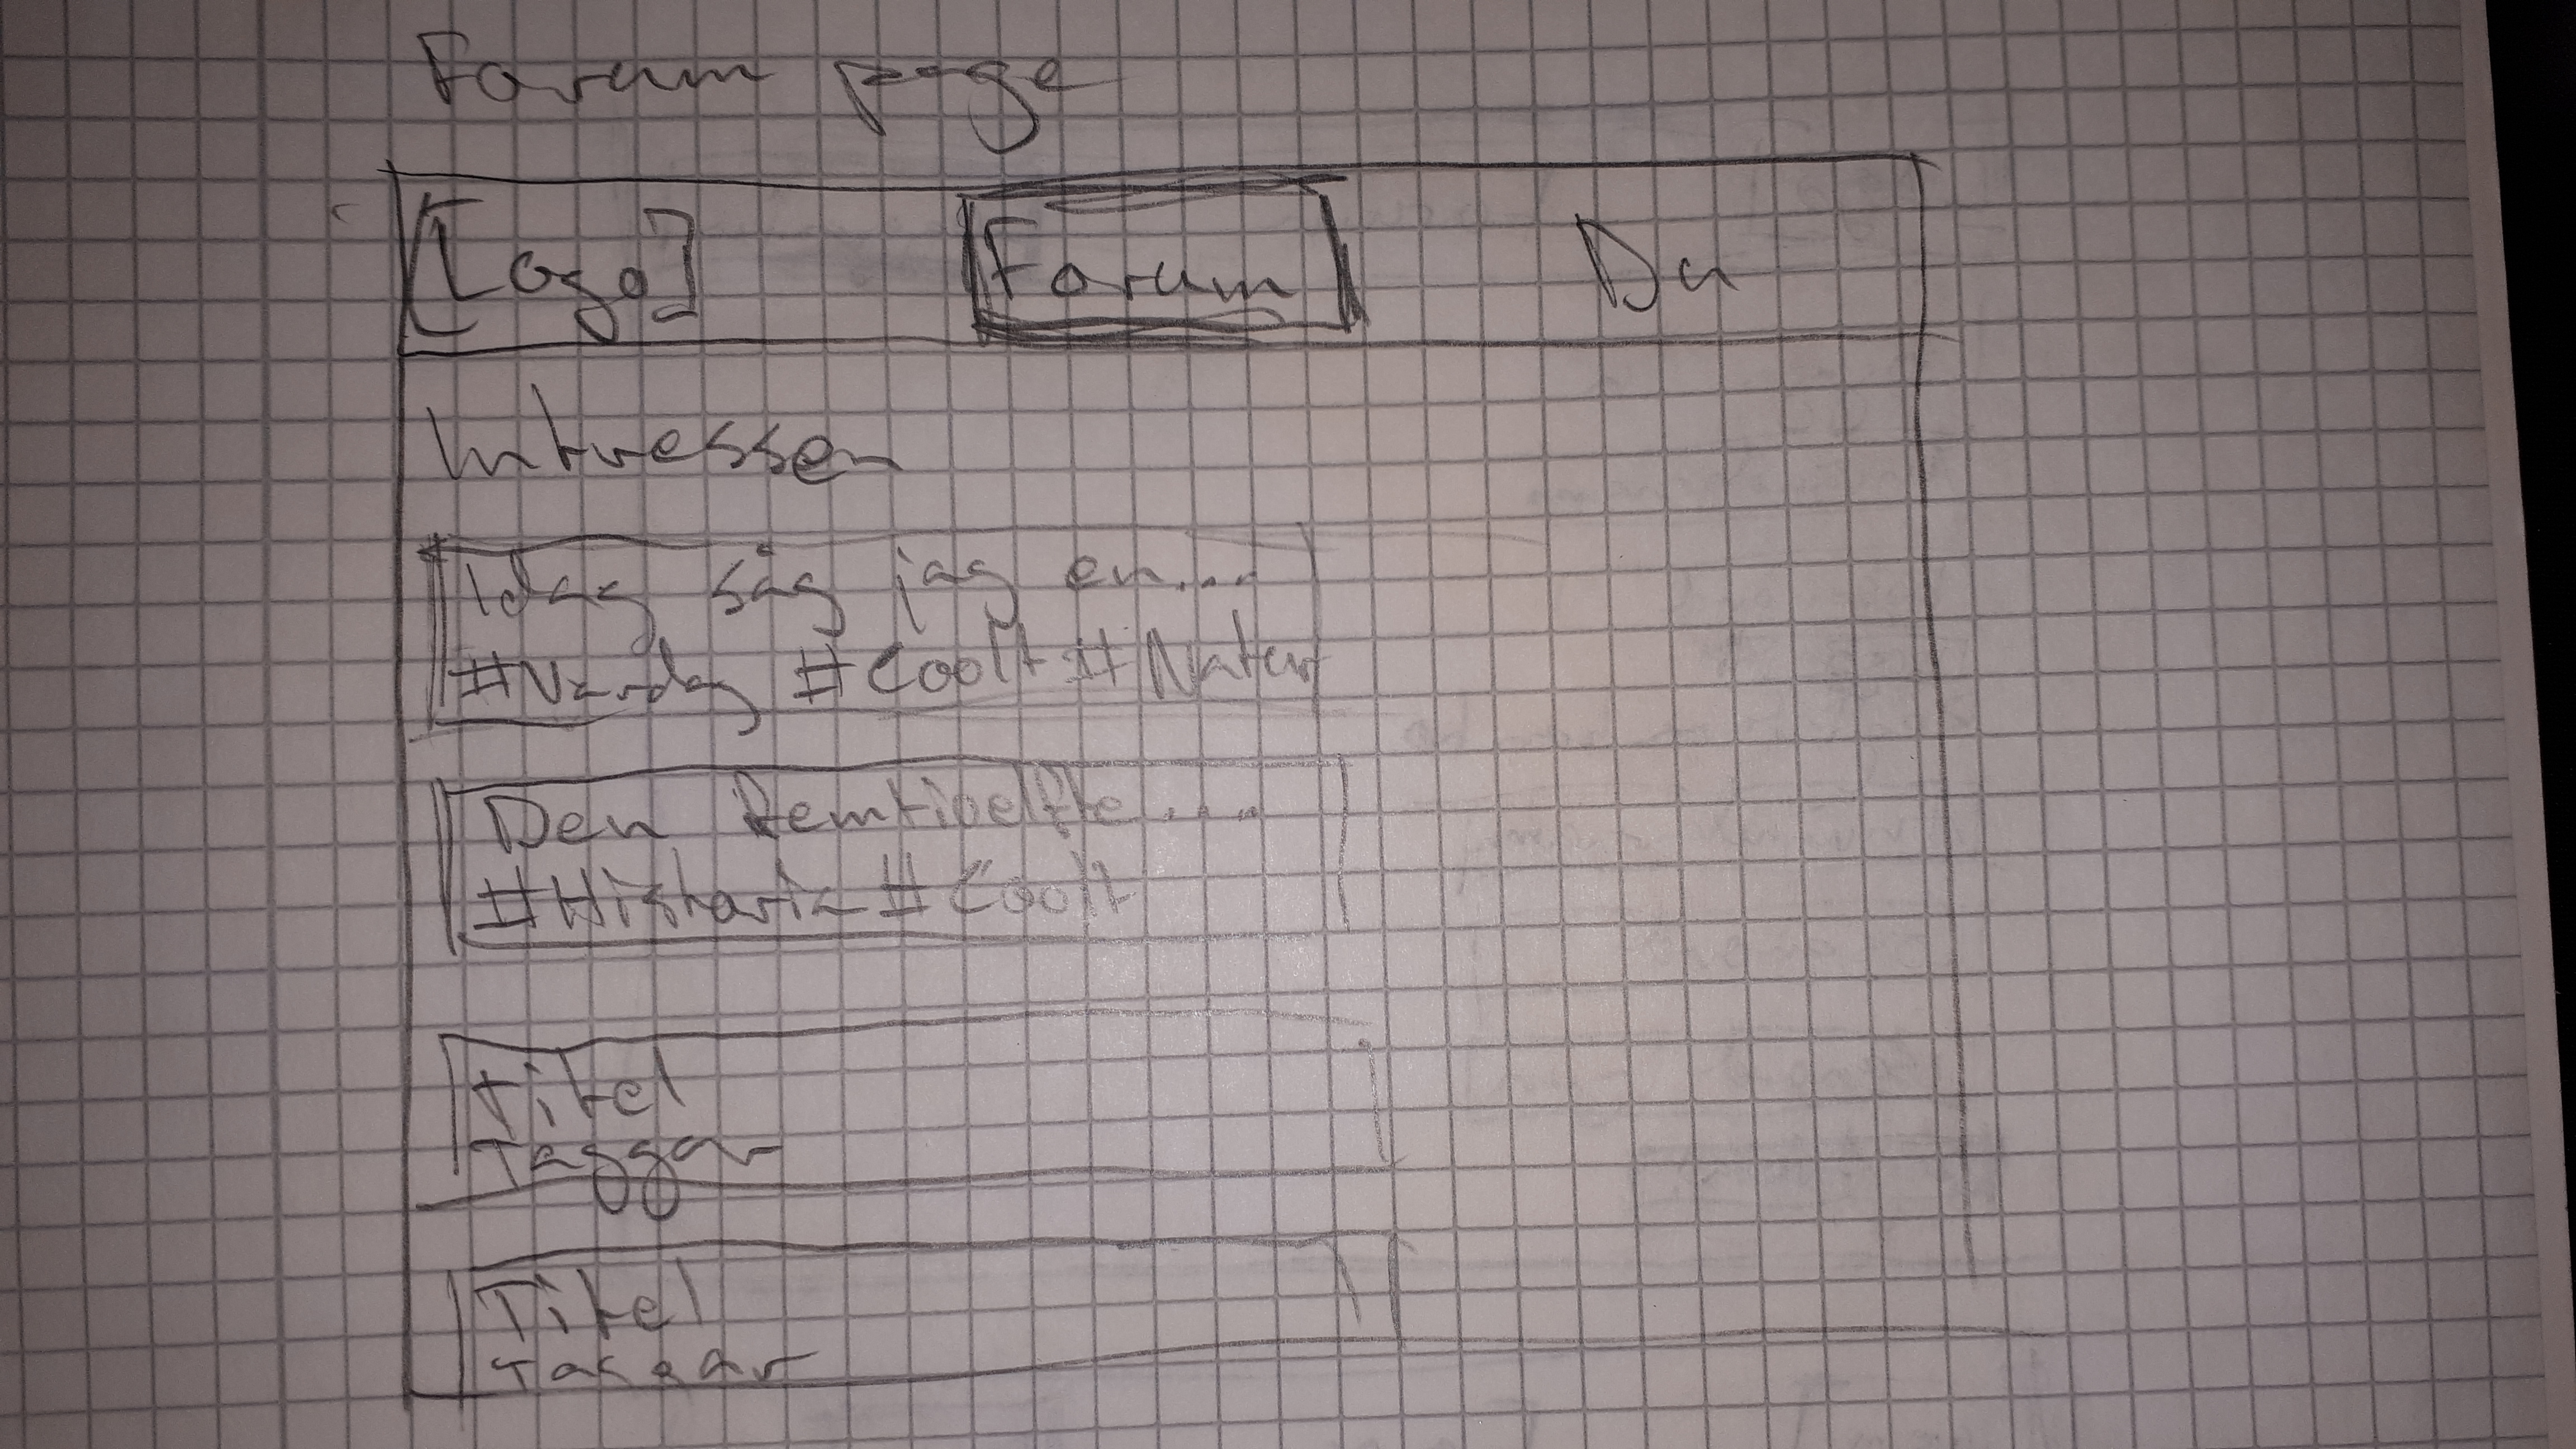 Forum page
[Logo] Forum Du
Intressen
Idag såg jag en...
#Vardag #Coolt #Natur
Den femtioelfte....
#Historia #Coolt
Titel
Taggar
Titel
Taggar